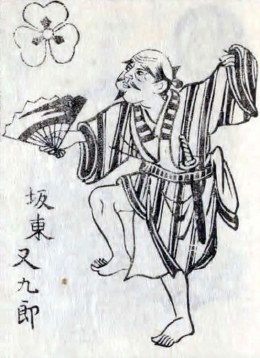 坂東又九郎